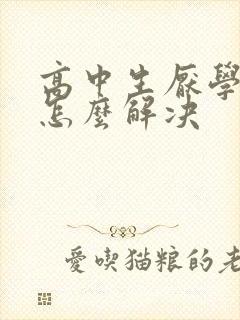 高中生厭學
怎麼解决
愛喫猫粮的老